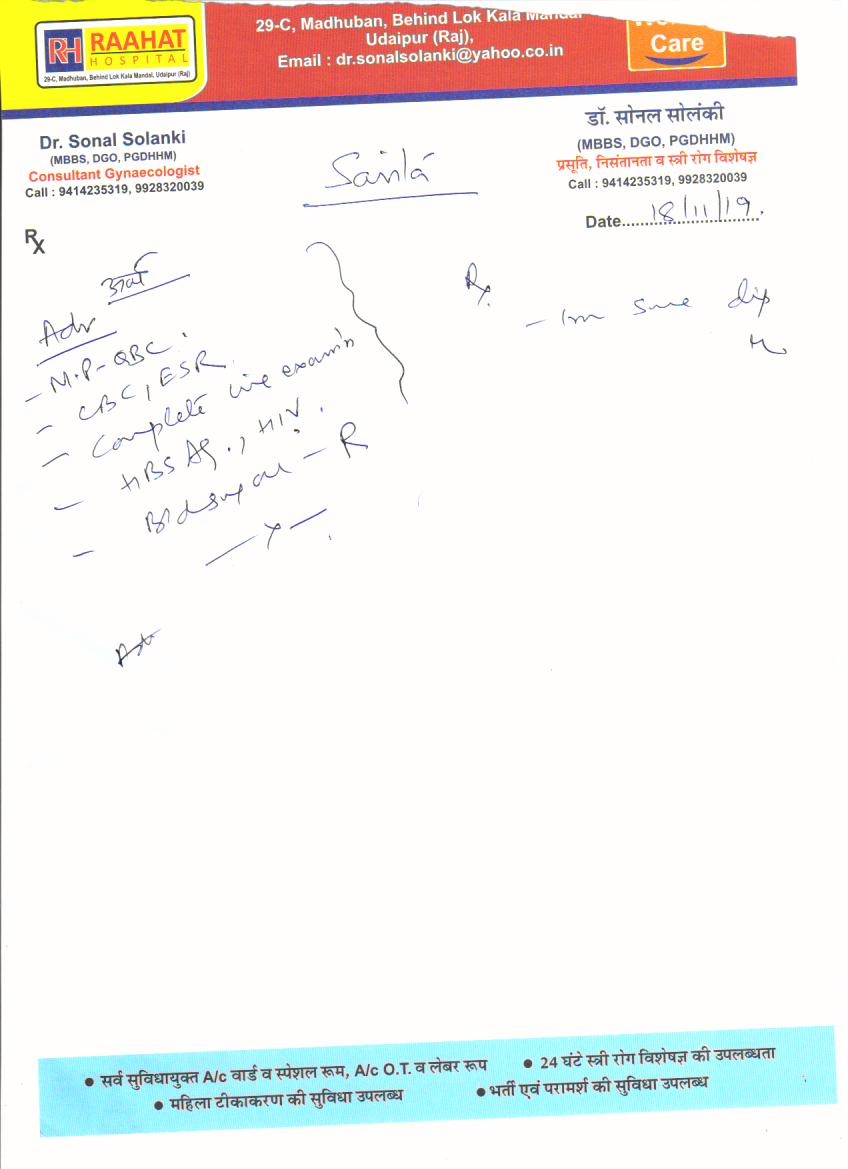 RH RAAHAT
HOSPITAL
29-C, Madhuban, Behind Lok Kala Mandal, Udaipur (Raj)
29-C, Madhuban, Behind Lok Kala Mandal
Udaipur (Raj),
Email : dr.sonalsolanki@yahoo.co.in
Care
Dr. Sonal Solanki
(MBBS, DGO, PGDHHM)
Consultant Gynaecologist
Call : 9414235319, 9928320039
डॉ. सोनल सोलंकी
(MBBS, DGO, PGDHHM)
प्रसूति, निसंतानता व स्त्री रोग विशेषज्ञ
Call : 9414235319, 9928320039
Date 18/11/19.
Rx
Adv
- M.P - QBC.
- CBC, ESR
- Complete urine exam'n
- HBSAg., HIV.
- Bld sugar - R
- x -
Rx
- sure dip
● सर्व सुविधायुक्त A/c वार्ड व स्पेशल रूम, A/c O.T. व लेबर रूप
● 24 घंटे स्त्री रोग विशेषज्ञ की उपलब्धता
● महिला टीकाकरण की सुविधा उपलब्ध
● भर्ती एवं परामर्श की सुविधा उपलब्ध